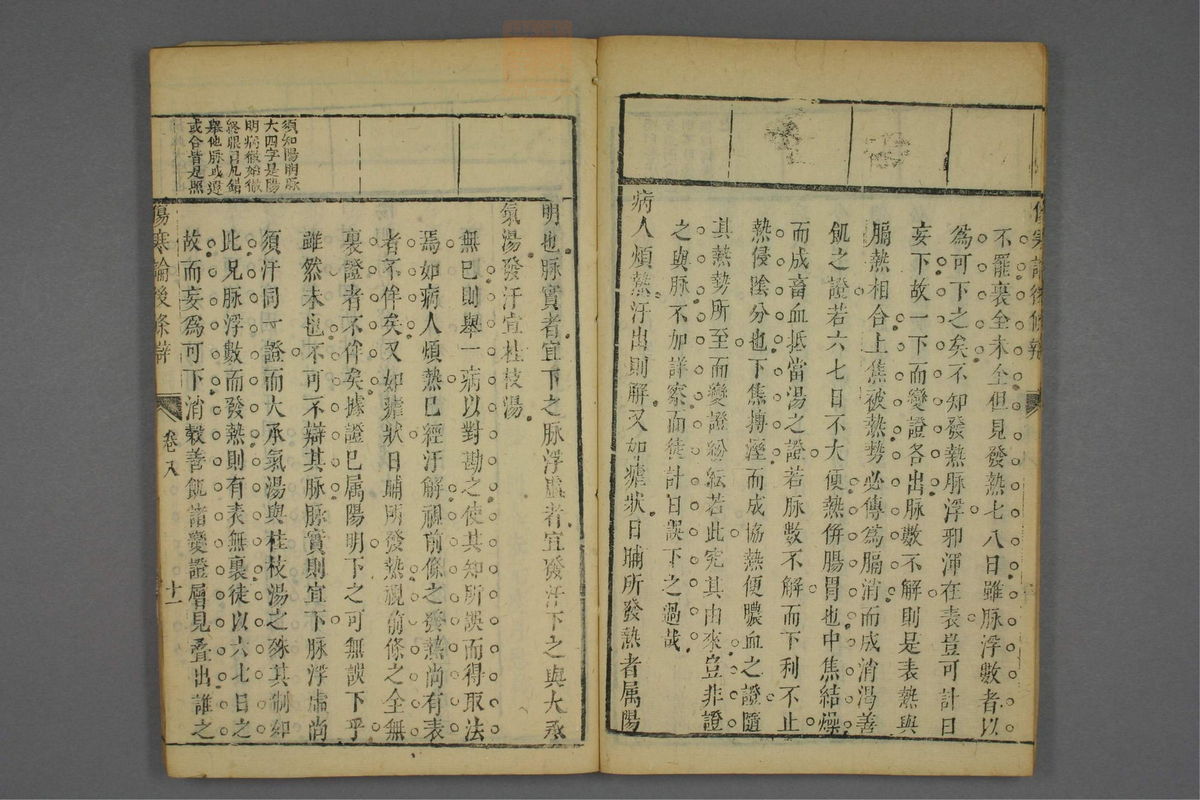 傷寒論後條辯
不罷裏全未全但見發熱七八日雖脉浮數者以
爲可下之矣不知發熱脉浮邪渾在表豈可計日
妄下故一下而變證各出脉數不解則是表熱與
膈熱相合上焦被熱勢必傳爲膈消而成消渴善
飢之證若六七日不大便熱併腸胃也中焦結燥
而成畜血抵當湯之證若脉數不解而下利不止
熱侵陰分也下焦搏溼而成協熱便膿血之證隨
其熱勢所至而變證紛紜若此究其由來豈非證
之與脉不加詳察而徒計日誤下之過哉
病人煩熱汗出則解又如瘧狀日晡所發熱者属陽
明也脉實者宜下之脉浮虛者宜發汗下之與大承
氣湯發汗宜桂枝湯
無巳則舉一病以對勘之使其知所誤而得取法
焉如病人煩熱巳經汗解視前條之發熱尚有表
者不侔矣又如瘧狀日晡所發熱視前條之全無
裏證者不侔矣據證巳属陽明下之可無誤下乎
雖然未也不可不辯其脉脉實則宜下脉浮虛尚
須汗同一證而大承氣湯與桂枝湯之殊其制如
此况脉浮數而發熱則有表無裏徒以六七日之
故而妄爲可下消穀善飢諸變證層見叠出誰之
須知陽明脉
大四字是陽
明病徹始徹
終眼目凡錯
舉他脉或遺
或合皆是照
傷寒論後條辯
卷八
十一